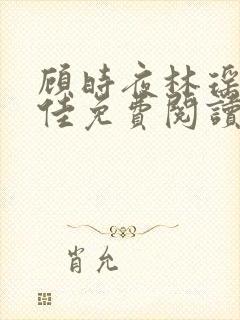 顾時夜林瑶
佳免費閱讀
肖允